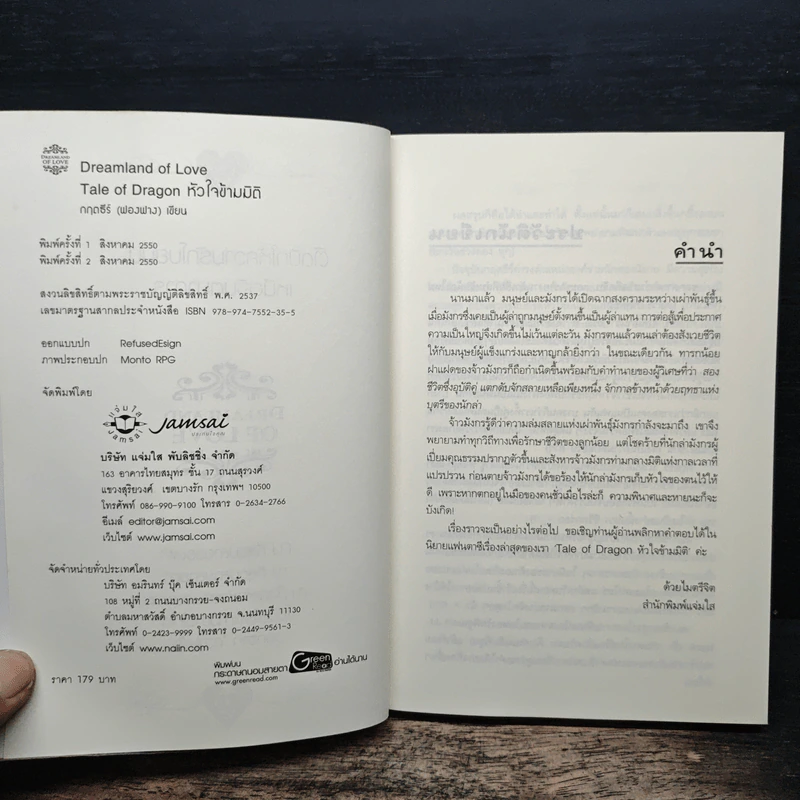 DREAMLAND
OF LOVE
Dreamland of Love
Tale of Dragon หัวใจข้ามมิติ
กฤตธีร์ (ฟองฟาง) เขียน
พิมพ์ครั้งที่ 1 สิงหาคม 2550
พิมพ์ครั้งที่ 2 สิงหาคม 2550
สงวนลิขสิทธิ์ตามพระราชบัญญัติลิขสิทธิ์ พ.ศ. 2537
เลขมาตรฐานสากลประจำหนังสือ ISBN 978-974-7552-35-5
ออกแบบปก RefusedEsign
ภาพประกอบปก Monto RPG
จัดพิมพ์โดย
แจ่มใส
jamsai
jamsai
บริษัท แจ่มใส พับลิชชิ่ง จำกัด
163 อาคารไทยสมุทร ชั้น 17 ถนนสุรวงศ์
แขวงสุริยวงศ์ เขตบางรัก กรุงเทพฯ 10500
โทรศัพท์ 086-990-9100 โทรสาร 0-2634-2766
อีเมล์ editor@jamsai.com
เว็บไซต์ www.jamsai.com
จัดจำหน่ายทั่วประเทศโดย
บริษัท อมรินทร์ บุ๊ค เซ็นเตอร์ จำกัด
108 หมู่ที่ 2 ถนนบางกรวย-จงถนอม
ตำบลมหาสวัสดิ์ อำเภอบางกรวย จ.นนทบุรี 11130
โทรศัพท์ 0-2423-9999 โทรสาร 0-2449-9561-3
เว็บไซต์ www.naiin.com
พิมพ์บน
กระดาษถนอมสายตา Green Read อ่านได้นาน
www.greenread.com
ราคา 179 บาท
คำนำ
นานมาแล้ว มนุษย์และมังกรได้เปิดฉากสงครามระหว่างเผ่าพันธุ์ขึ้น
เมื่อมังกรซึ่งเคยเป็นผู้ล่าถูกมนุษย์ตั้งตนขึ้นเป็นผู้ล่าแทน การต่อสู้เพื่อประกาศ
ความเป็นใหญ่จึงเกิดขึ้นไม่เว้นแต่ละวัน มังกรตนแล้วตนเล่าต้องสังเวยชีวิต
ให้กับมนุษย์ผู้แข็งแกร่งและหาญกล้ายิ่งกว่า ในขณะเดียวกัน ทารกน้อย
ฝาแฝดของจ้าวมังกรก็ถือกำเนิดขึ้นพร้อมกับคำทำนายของผู้วิเศษที่ว่า สอง
ชีวิตซึ่งอุบัติคู่ แตกดับจักสลายเหลือเพียงหนึ่ง จักกาลข้างหน้าด้วยฤทธาแห่ง
บุตรีของนักล่า
จ้าวมังกรรู้ดีว่าความล่มสลายแห่งเผ่าพันธุ์มังกรกำลังจะมาถึง เขาจึง
พยายามทำทุกวิถีทางเพื่อรักษาชีวิตของลูกน้อย แต่โชคร้ายที่นักล่ามังกรผู้
เปี่ยมคุณธรรมปรากฏตัวขึ้นและสังหารจ้าวมังกรท่ามกลางมิติแห่งกาลเวลาที่
แปรปรวน ก่อนตายจ้าวมังกรได้ขอร้องให้นักล่ามังกรเก็บหัวใจของตนไว้ให้
ดี เพราะหากตกอยู่ในมือของคนชั่วเมื่อไรล่ะก็ ความพินาศและหายนะก็จะ
บังเกิด!
เรื่องราวจะเป็นอย่างไรต่อไป ขอเชิญท่านผู้อ่านพลิกหาคำตอบได้ใน
นิยายแฟนตาซีเรื่องล่าสุดของเรา 'Tale of Dragon หัวใจข้ามมิติ' ค่ะ
ด้วยไมตรีจิต
สำนักพิมพ์แจ่มใส